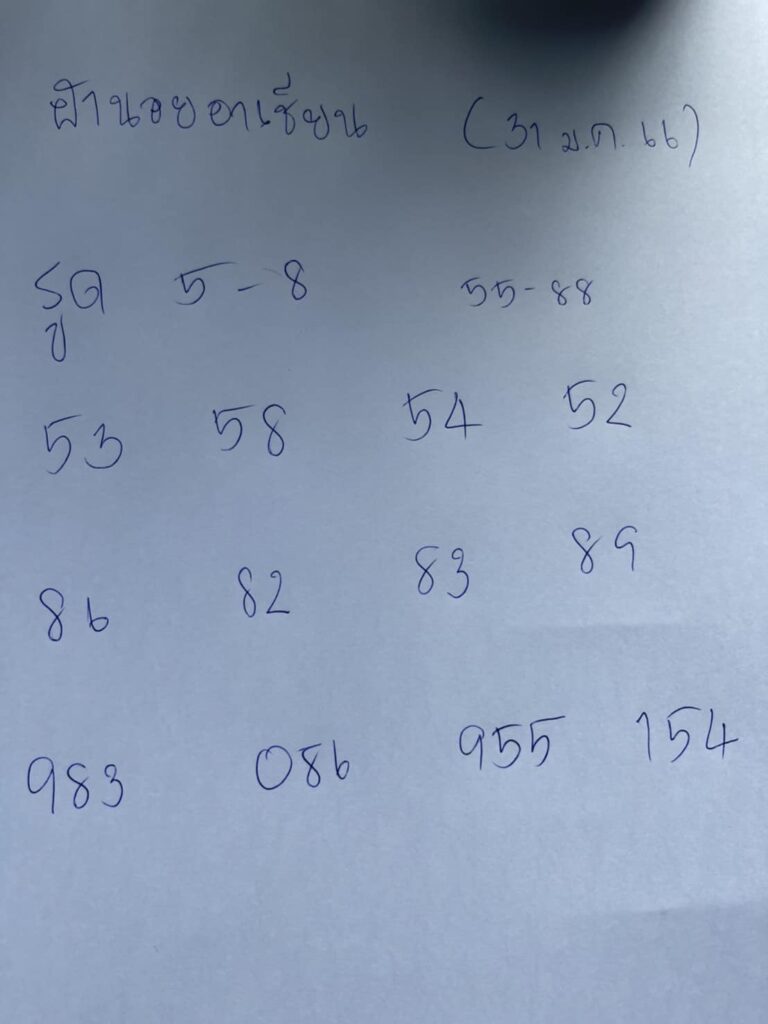 ฝ้านอยอาเซียน (31 ม.ค. 66)
รูด 5-8 55-88
53 58 54 52
86 82 83 89
983 086 955 154